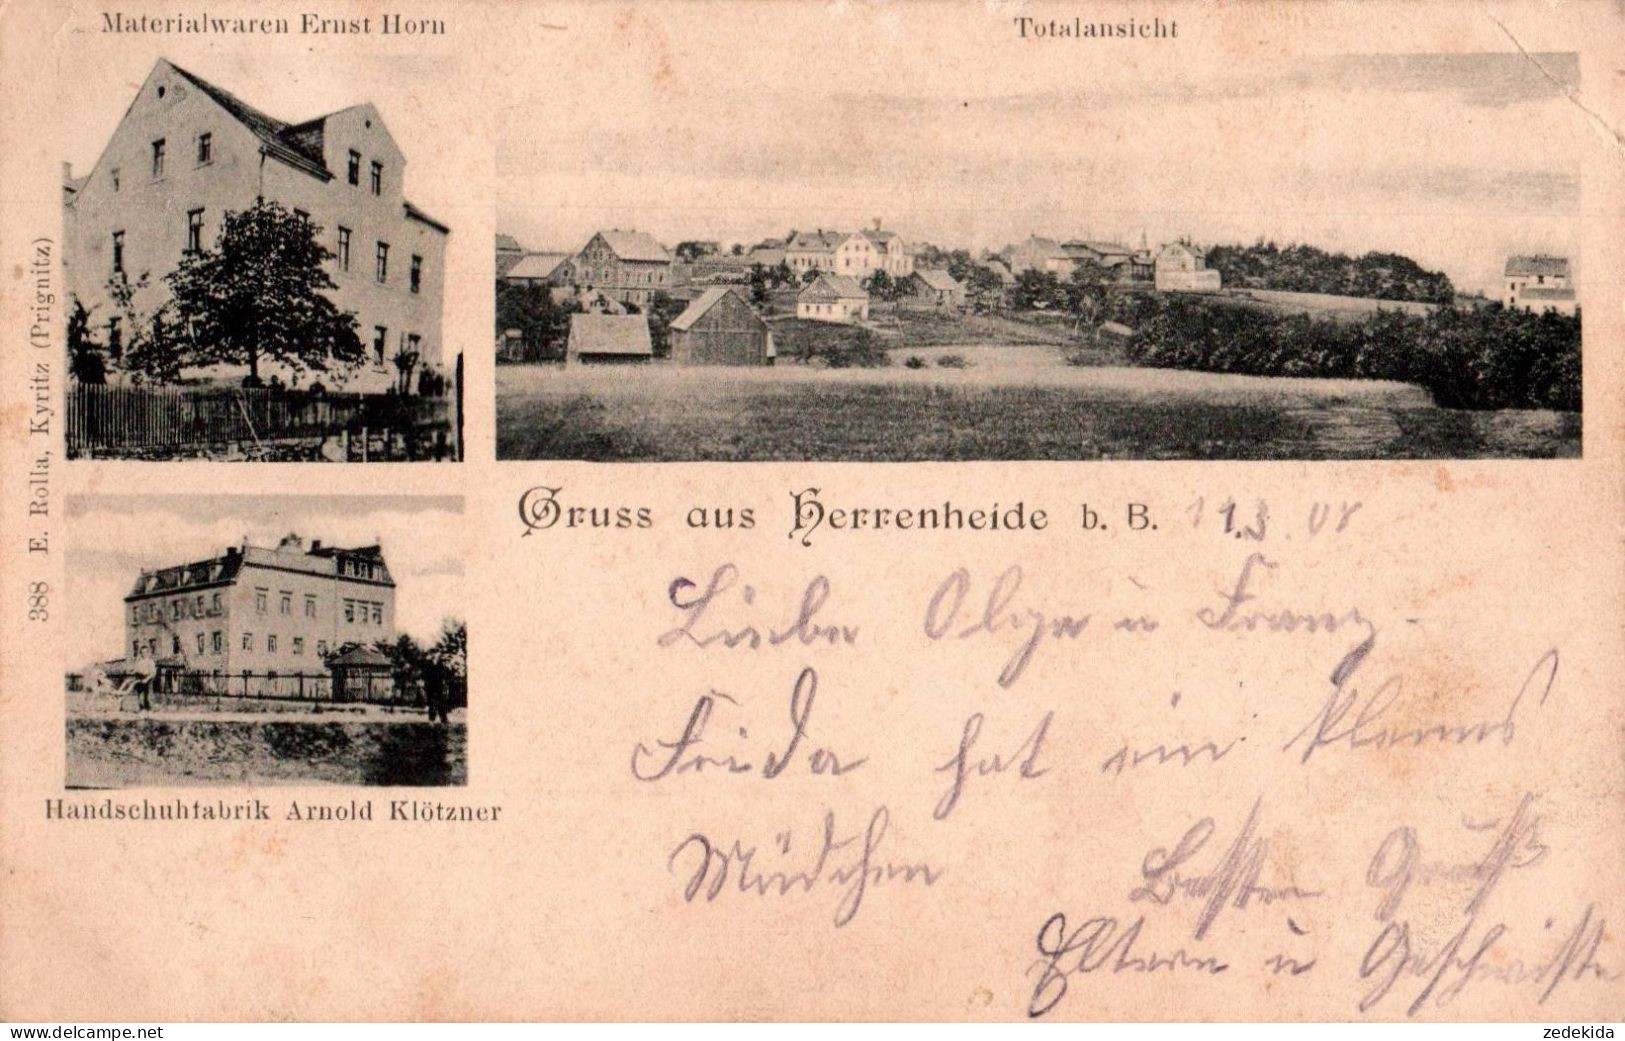 Materialwaren Ernst Horn
Totalansicht
388 E. Rolla, Kyritz (Prignitz)
Gruss aus Herrenheide b. B. 11.3.08
Liebe Olga u Franz
Frida hat ein kleines
Mädchen
Besten Gruß
Eltern u Geschwister
Handschuhfabrik Arnold Klötzner
www.delcampe.net
zedekida